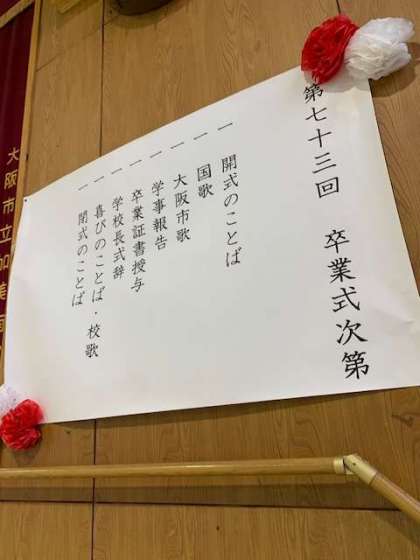 第七十三回 卒業式次第
一 開式のことば
一 国歌
一 大阪市歌
一 学事報告
一 卒業証書授与
一 学校長式辞
一 喜びのことば・校歌
一 閉式のことば
大阪市立加美